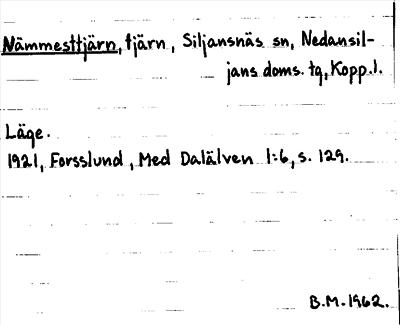 Nämmesttjärn, tjärn, Siljansnäs sn, Nedansil-
jans doms. tg, Kopp.l.
Läge.
1921, Forsslund, Med Dalälven 1:6, s. 129.
B.M. 1962.